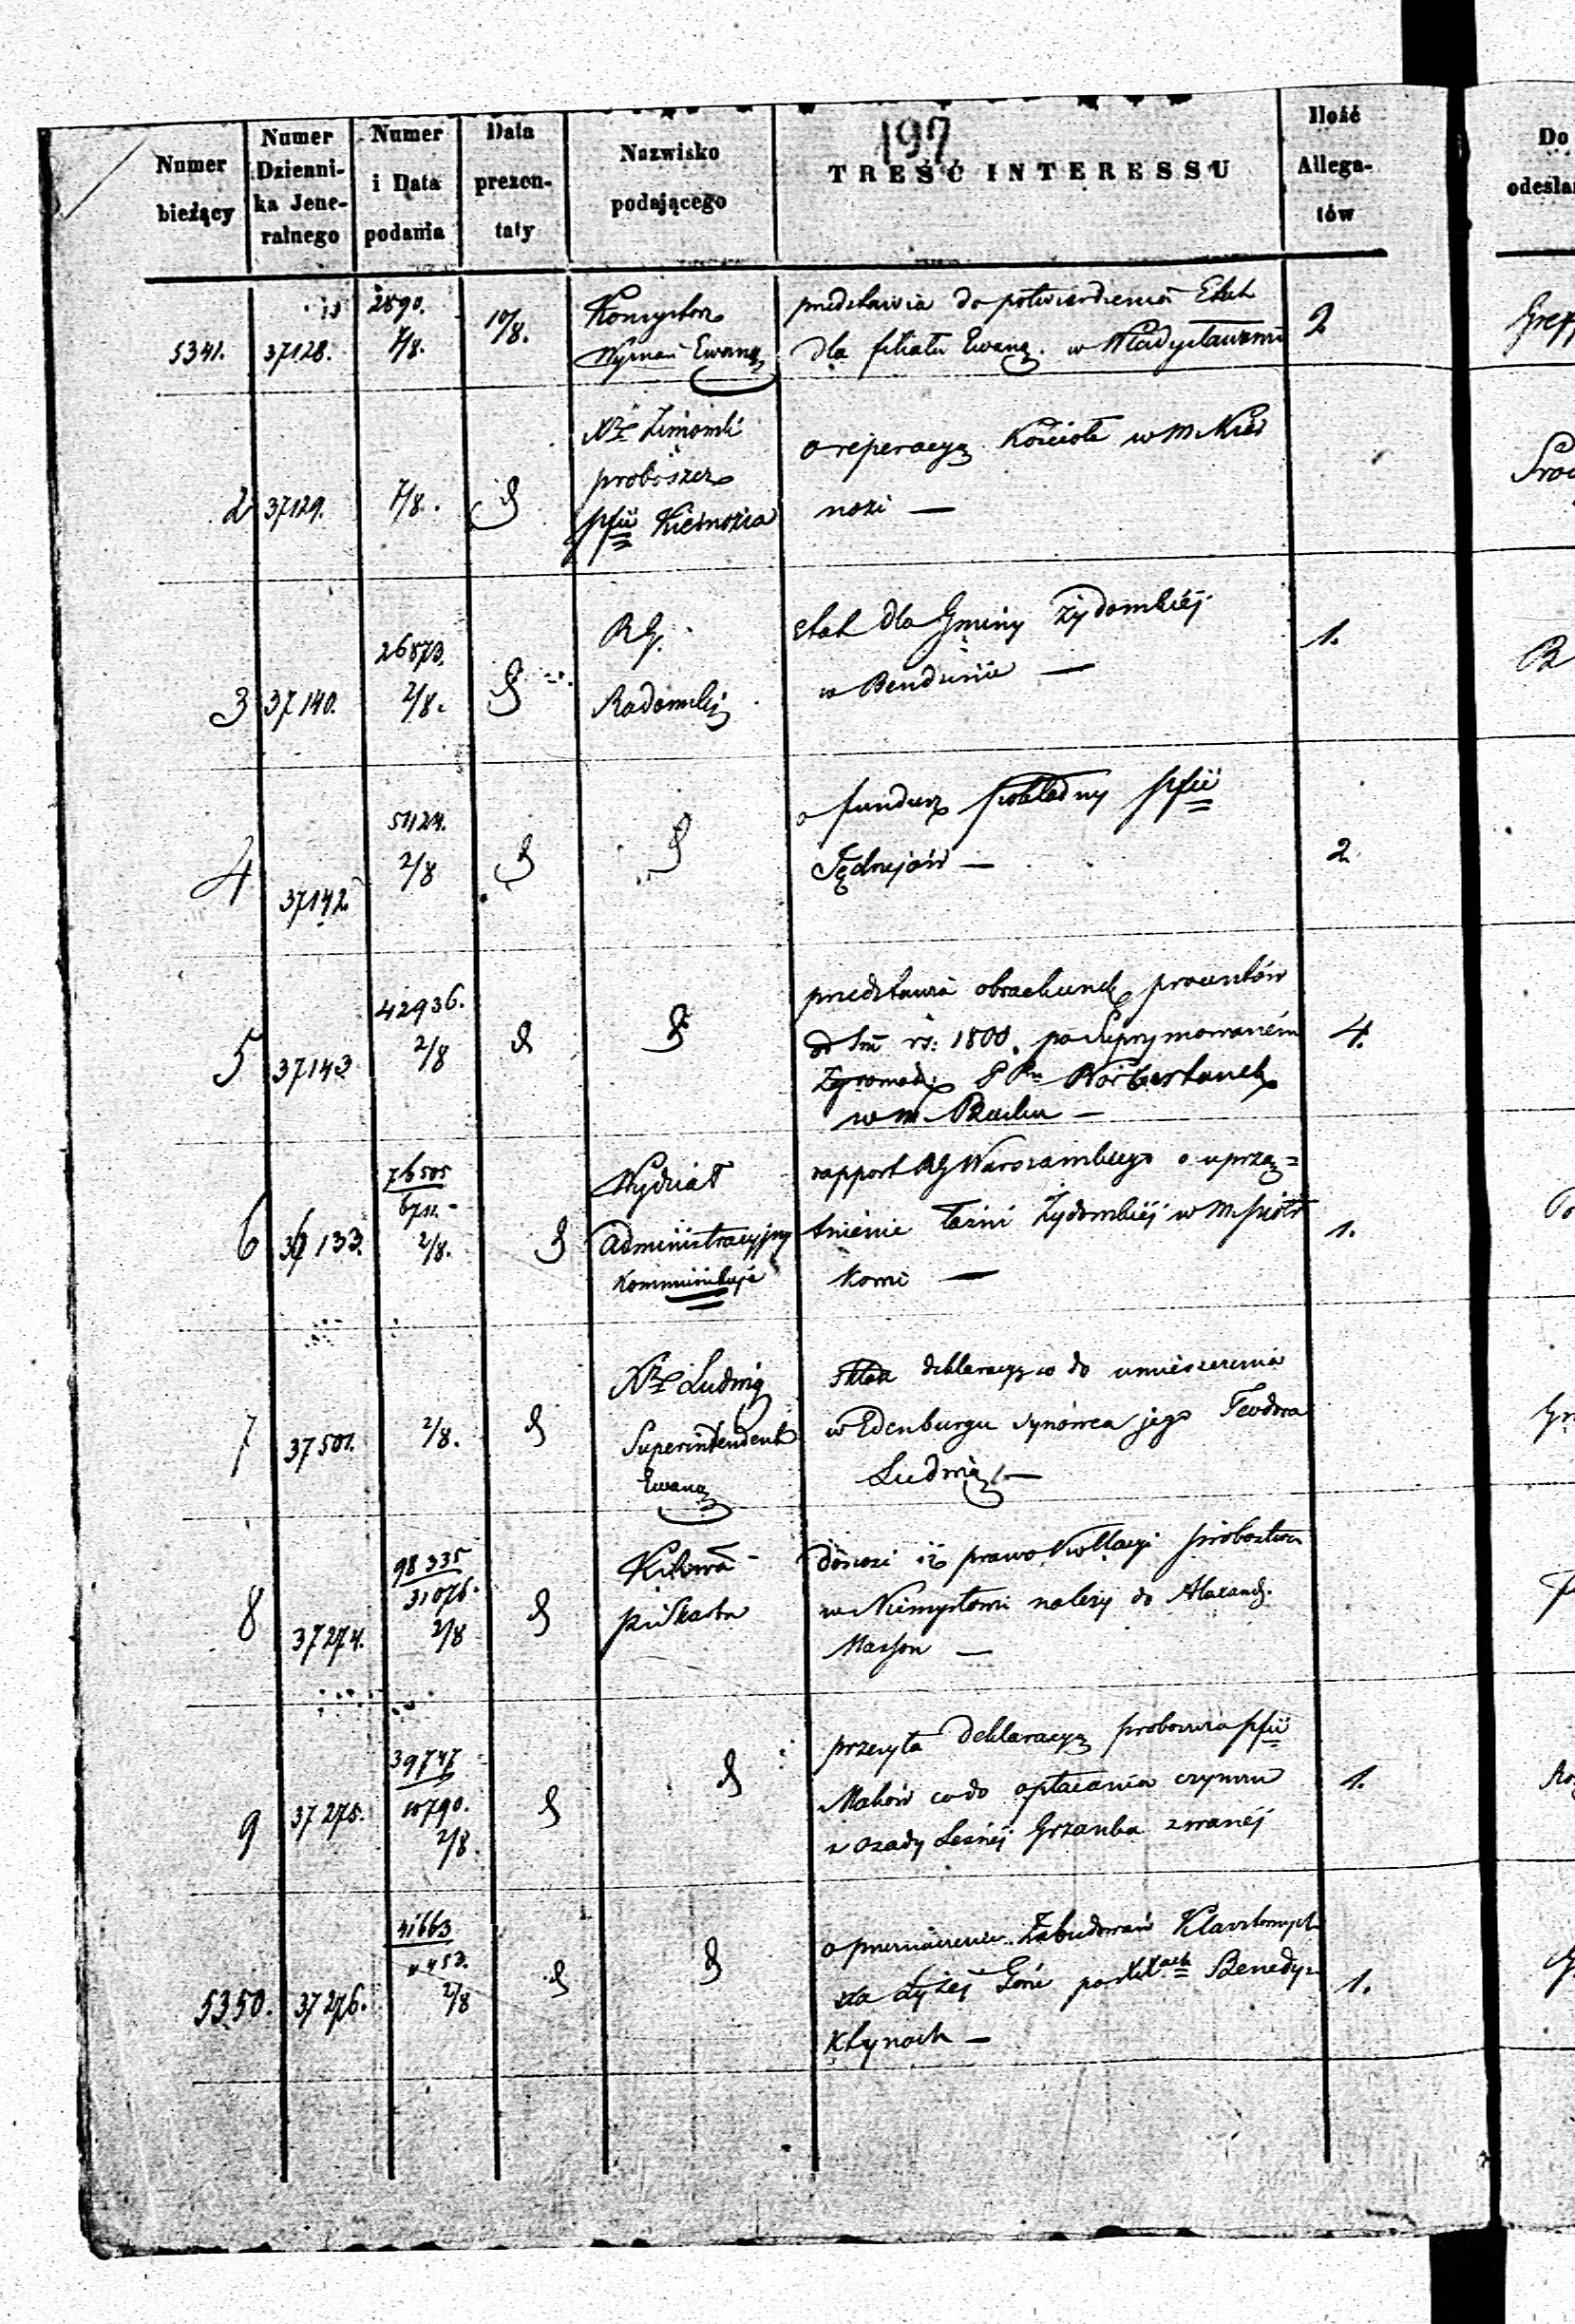 197
Numer bieżący
Numer Dzienni-ka Jene-ralnego
Numer i Data podania
Data prezen-taty
Nazwisko podającego
TREŚĆ INTERESSU
Ilość Allega-tów
Do
odesła
5341. 37128. 2890. 7/8. 10/8.
Konsystorz
Wyznań Ewang.
przedstawia do potwierdzenia Etat
dla filiału Ewang. w Władysławowie
2
2 37129. 7/8.
Xdz
proboszcz
pfii Kiernozia
o reperacyą Kościoła w M. Kier
nozi —
3 37140. 26873. 2/8.
RG.
Radomskij
etat dla Gminy Żydowskiéj
w Bendzinie —
1.
4 37142. 51124. 2/8
o fundusz pokładny pfii
Jędrzejów —
2
5 37143 42936. 2/8
przedstawia obrachunek procentów
od Sm rs: 1800. po Supprymowaném
Zgromadz.
w m.
4.
6 37133. 76505 6711. 2/8.
Wydział
Administracyjny
Kommunikuje
rapport RG Warszawskiego o uprzą=
tnienie łaźni Żydowskiéj w M. Piąt
kowi —
1.
7 37501. 2/8.
Xdz Ludwig
Superintendent
Ewang
składa deklaracyą co do umieszczenia
w Edenburgu synówca jego Teodora
Ludwig —
8 37274. 98335 31076. 2/8
donosi iż prawo Kollacyi probostwa
w Niemysłowi należy do Alexand.
Masson —
9 37275. 39747 10790. 2/8.
przesyła deklaracyą proboszcza pfii
Maków co do opłacania czynszu
z osady Leśnéj Grzanka zwanéj
1.
5350. 37276. 41663 2/8
o przeznaczeniu Zabudowań Klasztornych
na Łyséj Górze po XXach Benedy=
ktynach —
1.